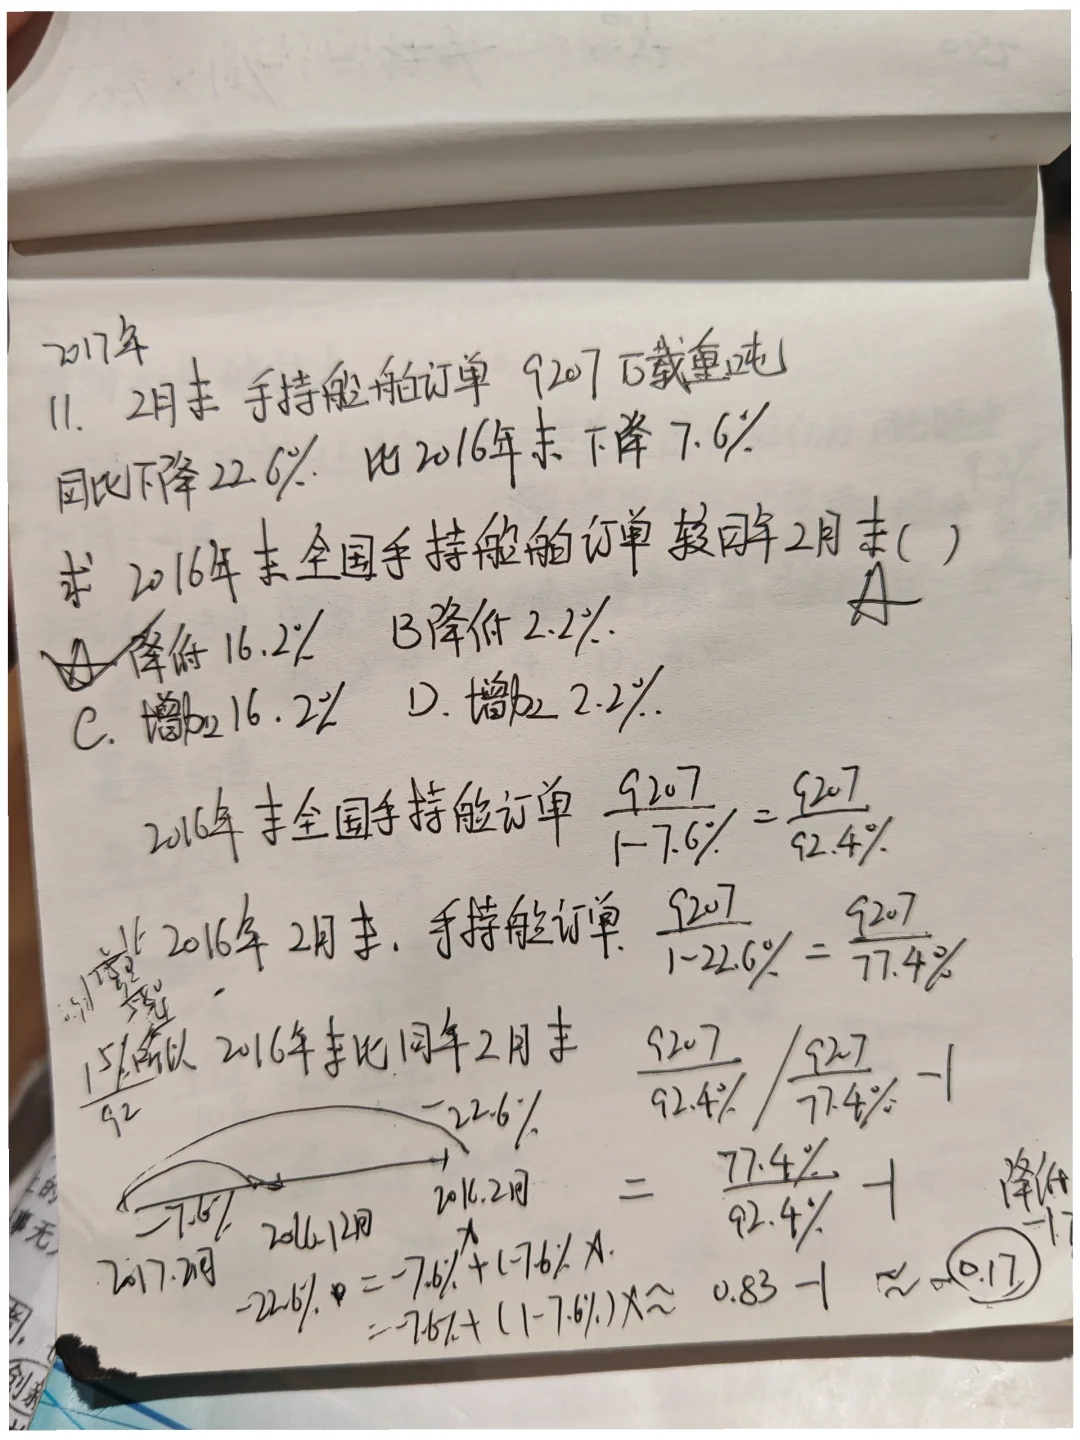 2017年
11. 2月末 手持船舶订单 9207万载重吨
同比下降22.6%. 比2016年末下降7.6%
求 2016年末全国手持船舶订单较同年2月末( )
A
A 降低16.2% B降低2.2%.
C. 增加16.2% D. 增加2.2%.
2016年末全国手持船订单 9207/1-7.6% = 9207/92.4%
2016年2月末. 手持船订单. 9207/1-22.6% = 9207/77.4%
所以 2016年末比同年2月末 9207/92.4% / 9207/77.4% -1
15%/92
-22.6%
= 77.4%/92.4% -1 降低
-7.6% 2016.12月 2016.2月
2017.2月
-22.6% = -7.6%+x+(-7.6%x).
=-7.6%+(1-7.6%)x ≈ 0.83-1 ≈ -0.17